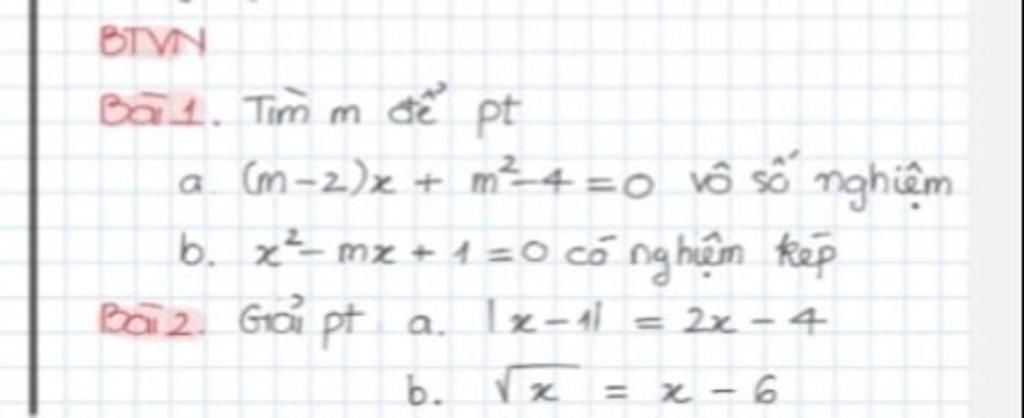 BTVN
Bài 1. Tìm m để pt
a (m-2)x + m²-4=0 vô số nghiệm
b. x²- mx + 1 = 0 có nghiệm kép
Bài 2. Giải pt a. |x-1| = 2x - 4
b. √x = x - 6